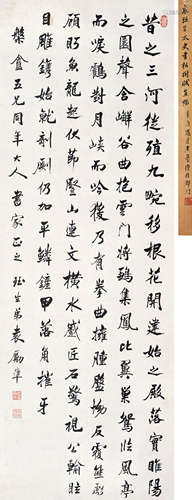 昔之三河徙殖九畹移根開華建始之殿落實睢陽
之園聲含嶰谷曲抱雲門將鶵集鳳比翼巢鴛臨風亭
而唳鶴對月峽而吟猨乃有拳曲擁腫盤坳反覆熊彪
顧盼魚龍起伏節豎山連文橫水蹙匠石驚視公輸眩
目雕鐫始就剞劂仍加平鱗鏟甲落角摧牙
五兄同年大人書家正之 珏生弟袁勵準
袁珏生太史書枯樹賦